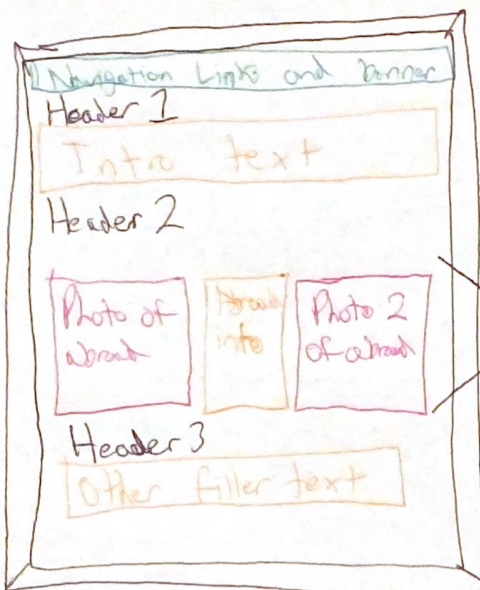 Navigation Links and banner
Header 1
Intro text
Header 2
Photo of
abroad
Abroad
info
Photo 2
of abroad
Header 3
Other filler text